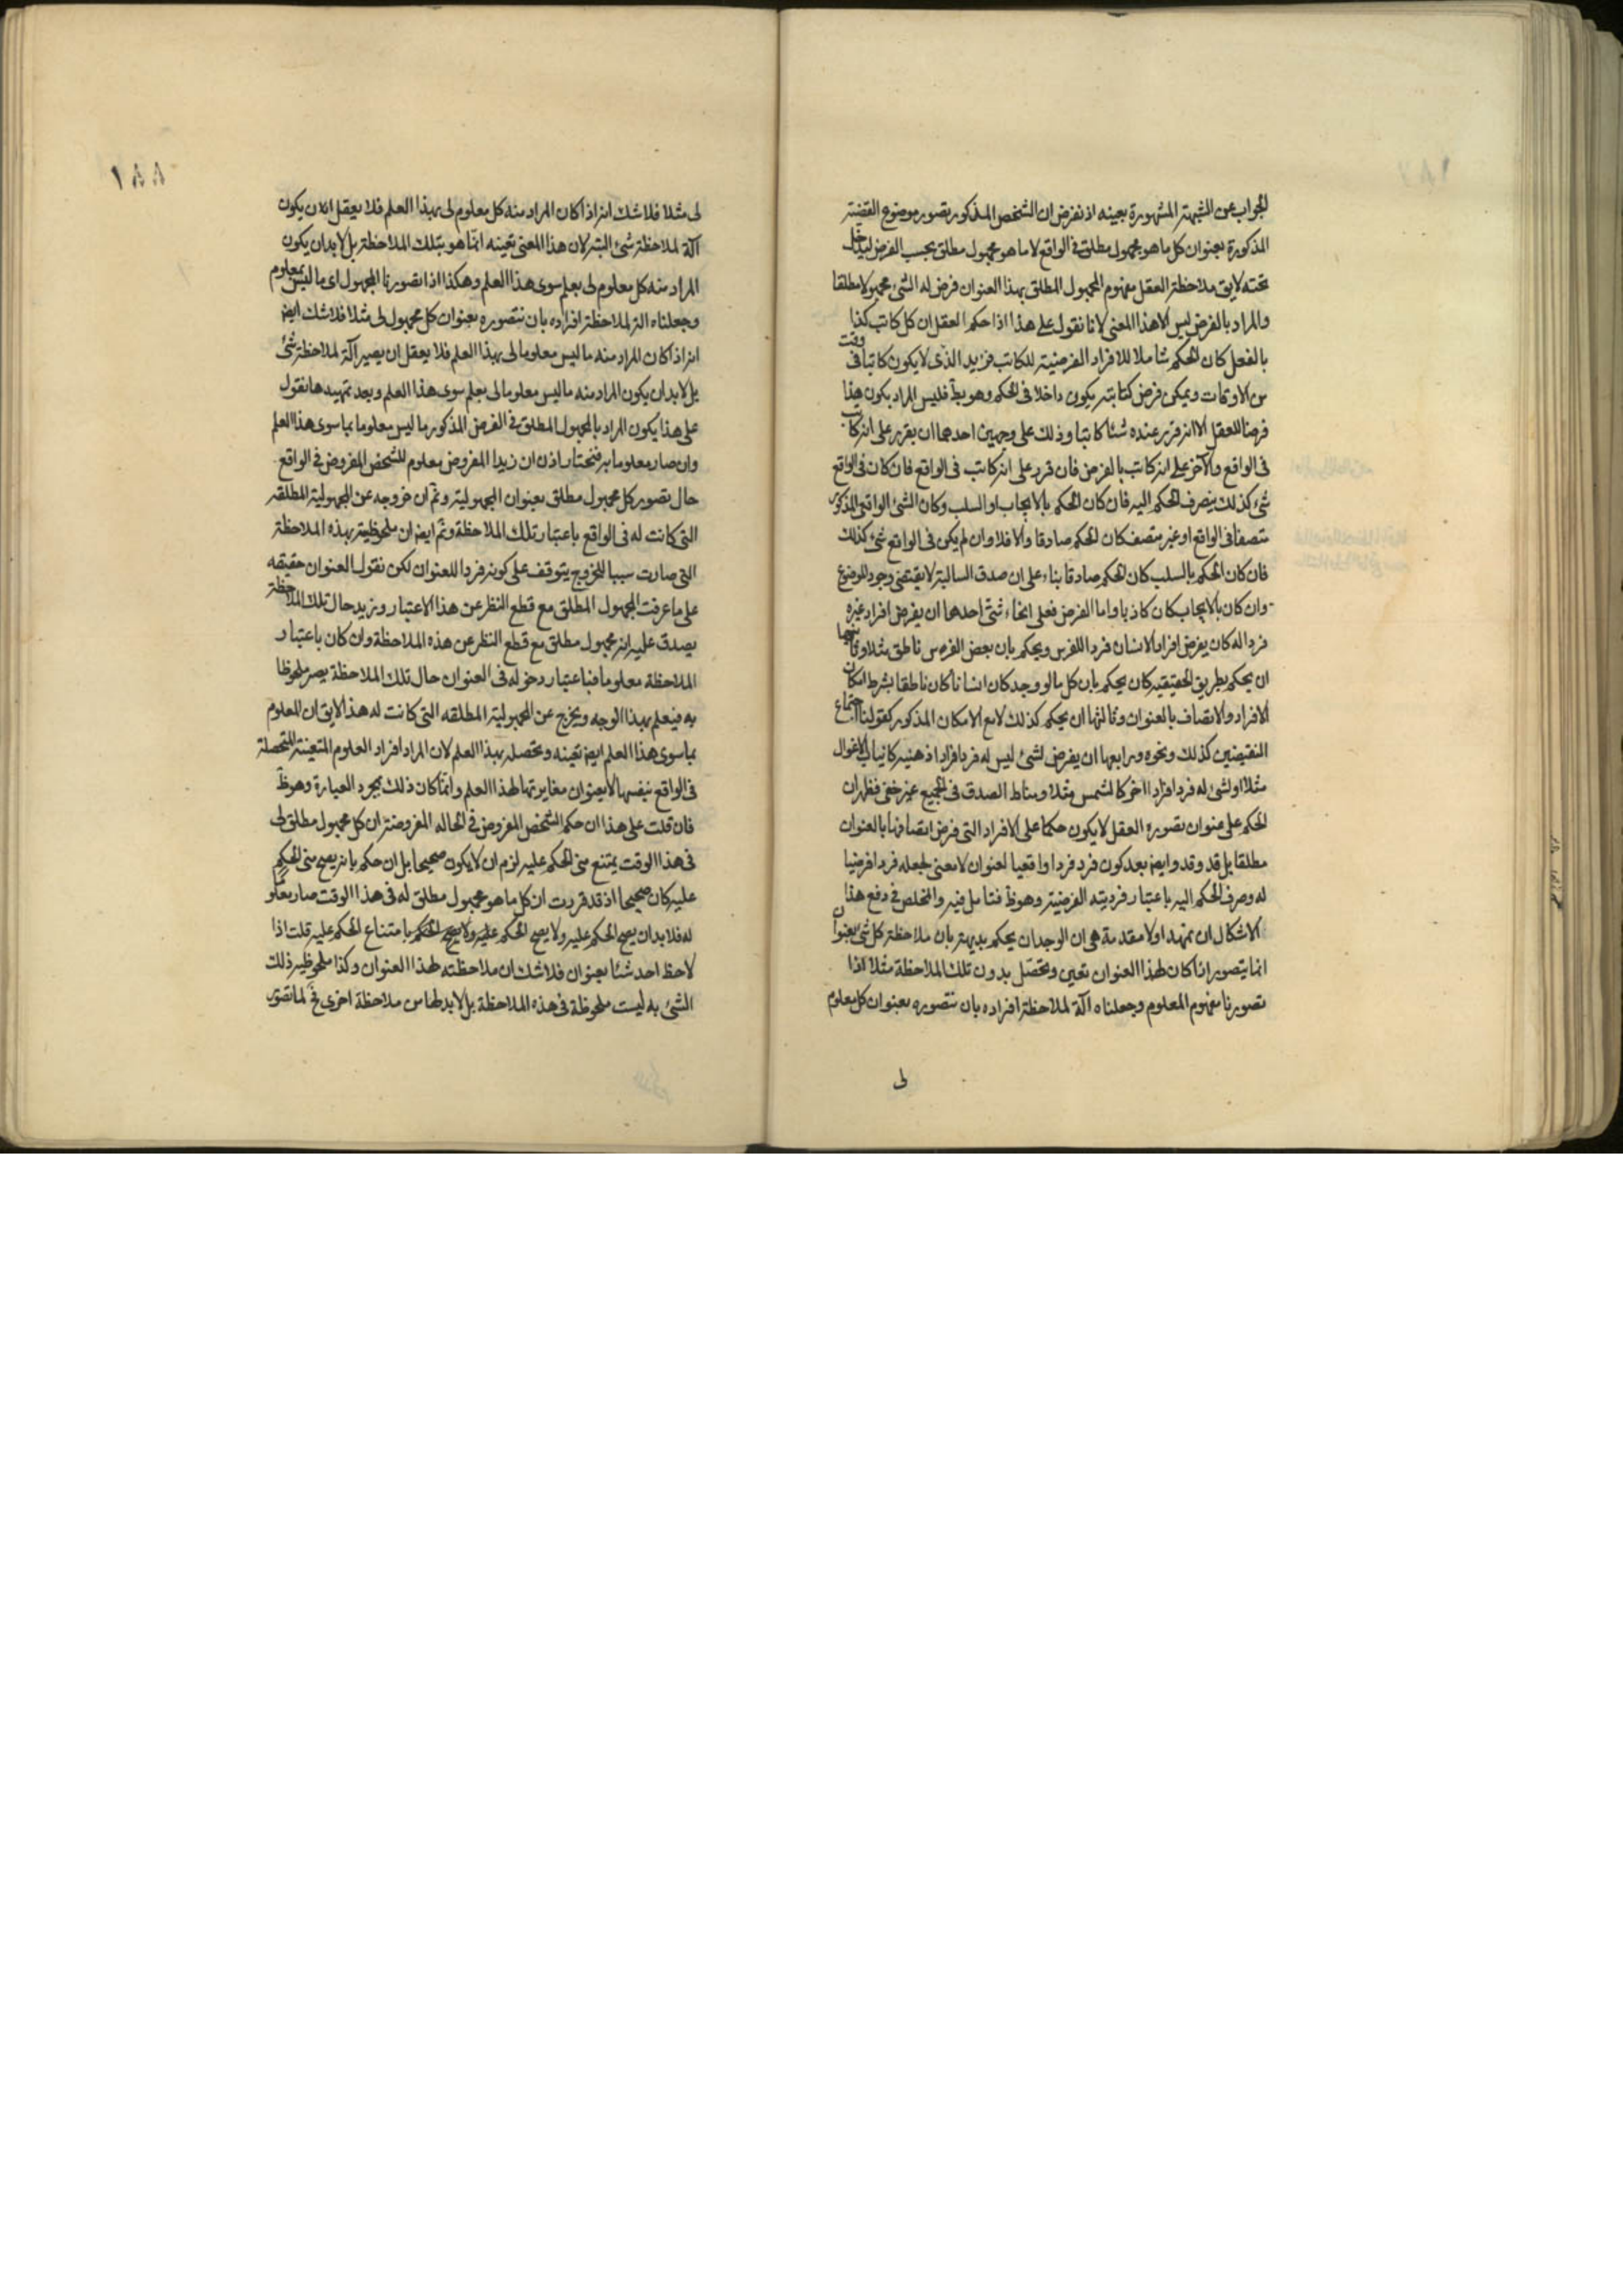 الجواب عن الشبهة المشهورة بعينه اذ نفرض ان الشخص المذكور تصور موضوع القضية
المذكورة بعنوان كل ما هو مجهول مطلق في الواقع لا ما هو مجهول مطلق بحسب الفرض ليدخل
تحته لايق ملاحظة العقل مفهوم المجهول المطلق بهذا العنوان فرض له الشئ مجهولا مطلقا
والمراد بالفرض ليس الا هذا المعنى لانا نقول على هذا اذا حكم العقل ان كل كاتب كذا
بالفعل كان الحكم شاملا للافراد الفرضية للكاتب فزيد الذى لا يكون كاتبا فى وقت
من الاوقات ويمكن فرض كتابته يكون داخلا فى الحكم وهو بط فليس المراد بكون هذا
فرضا للعقل الا انه قرر عنده شئا كاتبا وذلك على وجهين احدهما ان يقرر على انه كاتب
فى الواقع والآخر على انه كاتب بالفرض فان قرر على انه كاتب فى الواقع فان كان فى الواقع
شئ كذلك ينصرف الحكم اليه فان كان الحكم بالايجاب او السلب وكان الشئ الواقعى المذكور
متصفا فى الواقع او غير متصف كان الحكم صادقا والا فلا وان لم يكن فى الواقع شئ كذلك
فان كان الحكم بالسلب كان الحكم صادقا بناء على ان صدق السالبة لا يقتضى وجود الموضوع
وان كان بالايجاب كان كاذبا واما الفرض فعلى انحاء شتى احدها ان يفرض افراد غيره
فردا له كان يفرض افراد الانسان فردا للفرس ويحكم بان بعض الفرس ناطق مثلا وثانيها
ان يحكم بطريق الحقيقيه كان يحكم بان كل ما لو وجد كان انسانا كان ناطقا بشرط امكان
الافراد والاتصاف بالعنوان وثالثها ان يحكم كذلك لا مع الامكان المذكور كقولنا اجتماع
النقيضين كذلك ونحوه ورابعها ان يفرض لشئ ليس له فرد افرادا ذهنيه كانياب الاغوال
مثلا او لشئ له فرد افرادا اخر كالشمس مثلا ومناط الصدق فى الجميع غير خفى فظهر ان
الحكم على عنوان تصوره العقل لا يكون حكما على الافراد التى فرض اتصافها بالعنوان
مطلقا بل قد وقد وايضا بعد كون فرد فردا واقعيا لعنوان لا معنى لجعله فردا فرضيا
له وصرف الحكم اليه باعتبار فرديته الفرضية وهو ظ فتامل فيه والمخلص فى دفع هذا
الاشكال ان نمهد اولا مقدمة هى ان الوجدان يحكم بديهة بان ملاحظة كل شئ بعنوان
انما يتصور اذا كان لهذا العنوان تعين وتحصل بدون تلك الملاحظة مثلا اذا
تصورنا مفهوم المعلوم وجعلناه آلة لملاحظة افراده بان نتصوره بعنوان كل معلوم
لى
١٨٨
لى مثلا فلا شك انه اذا كان المراد منه كل معلوم لى بهذا العلم فلا يعقل ان يكون
آلة لملاحظة شئ البتة لان هذا المعنى تعينه انما هو بتلك الملاحظة بل لا بد ان يكون
المراد منه كل معلوم لى بعلم سوى هذا العلم وهكذا اذا تصورنا المجهول اى ما ليس بمعلوم
وجعلناه آلة لملاحظة افراده بان نتصوره بعنوان كل مجهول لى مثلا فلا شك ايضا
انه اذا كان المراد منه ما ليس معلوما لى بهذا العلم فلا يعقل ان يصير آلة لملاحظة شئ
بل لا بد ان يكون المراد منه ما ليس معلوما لى بعلم سوى هذا العلم وبعد تمهيدها نقول
على هذا يكون المراد بالمجهول المطلق فى الفرض المذكور ما ليس معلوما بما سوى هذا العلم
وان صار معلوما به فنختار اذن ان زيدا المفروض معلوم للشخص المفروض فى الواقع
حال تصور كل مجهول مطلق بعنوان المجهولية وثم ان خروجه عن المجهولية المطلقه
التى كانت له فى الواقع باعتبار تلك الملاحظة وثم ايضا ان ملحوظيته بهذه الملاحظة
التى صارت سببا للخروج يتوقف على كونه فردا للعنوان لكن نقول العنوان حقيقه
على ما عرفت المجهول المطلق مع قطع النظر عن هذا الاعتبار وزيد حال تلك الملاحظة
يصدق عليه انه مجهول مطلق مع قطع النظر عن هذه الملاحظة وان كان باعتبار
الملاحظة معلوما فباعتبار دخوله فى العنوان حال تلك الملاحظة يصير ملحوظا
به فيعلم بهذا الوجه ويخرج عن المجهولية المطلقه التى كانت له هذا لايق ان المعلوم
بما سوى هذا العلم ايضا تعينه وتحصله بهذا العلم لان المراد افراد العلوم المتعينة المتحصلة
فى الواقع بنفسها لا بعنوان مغايرتها لهذا العلم وانما كان ذلك بمجرد العبارة وهو ظ
فان قلت على هذا ان حكم الشخص المفروض فى الحاله المفروضة ان كل مجهول مطلق لى
فى هذا الوقت يمتنع منى الحكم عليه لزم ان لا يكون صحيحا بل ان حكم بانه يصح منى الحكم
عليه كان صحيحا اذ قد قررت ان كل ما هو مجهول مطلق له فى هذا الوقت صار معلوما
له فلا بد ان يصح الحكم عليه ولا يصح الحكم عليه ولا يصح الحكم بامتناع الحكم عليه قلت اذا
لاحظ احد شئا بعنوان فلا شك ان ملاحظته لهذا العنوان وكذا ملحوظيه ذلك
الشئ به ليست ملحوظة فى هذه الملاحظة بل لا بد لها من ملاحظة اخرى فح لما تصور